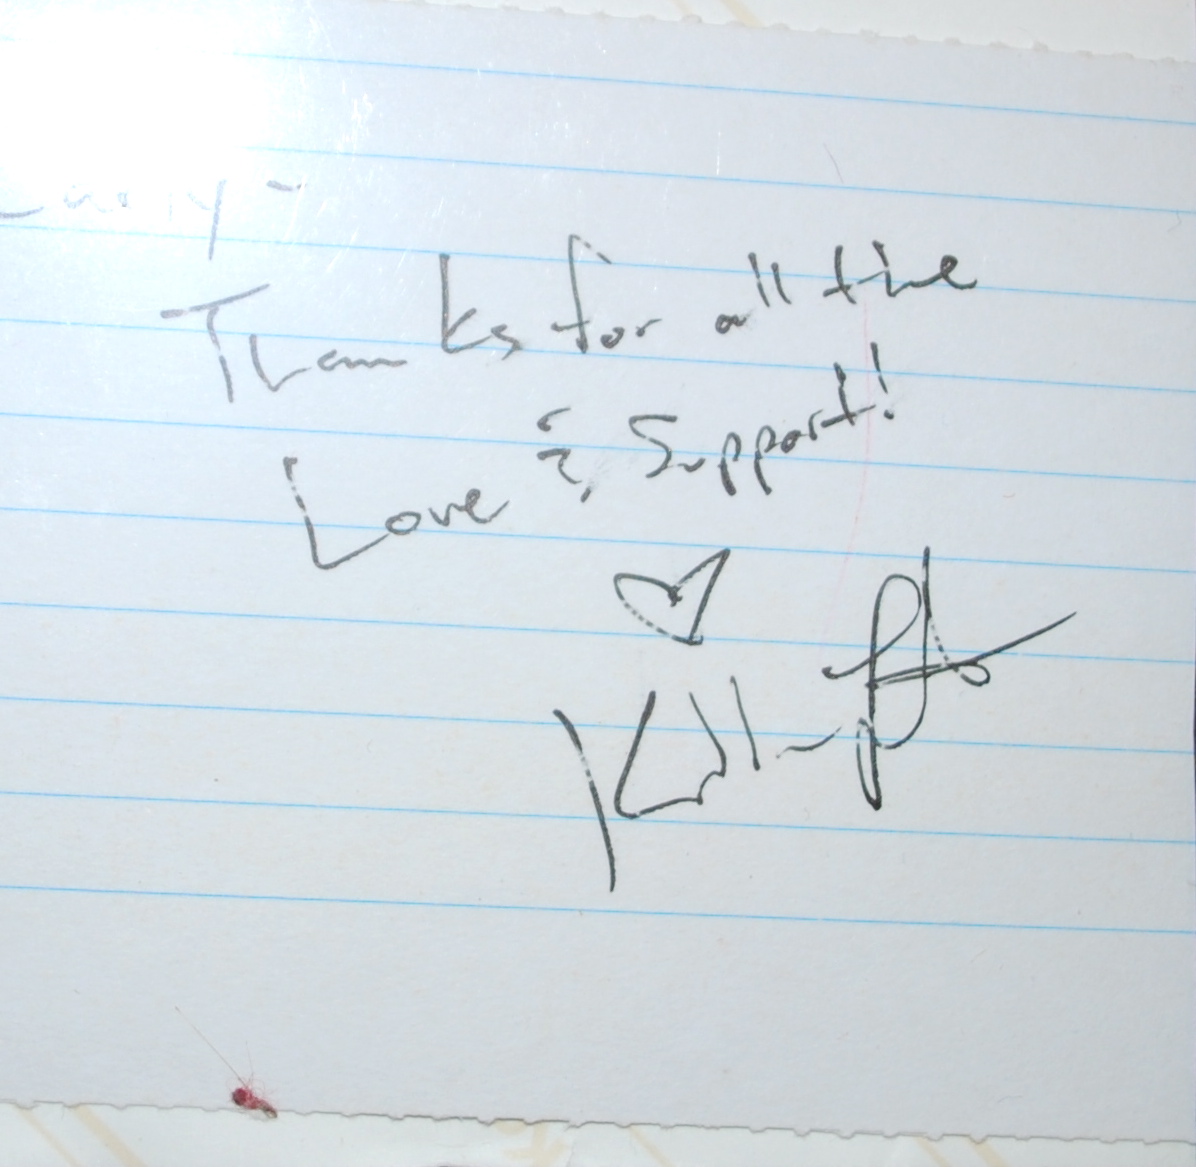 Thanks for all the
Love & Support!